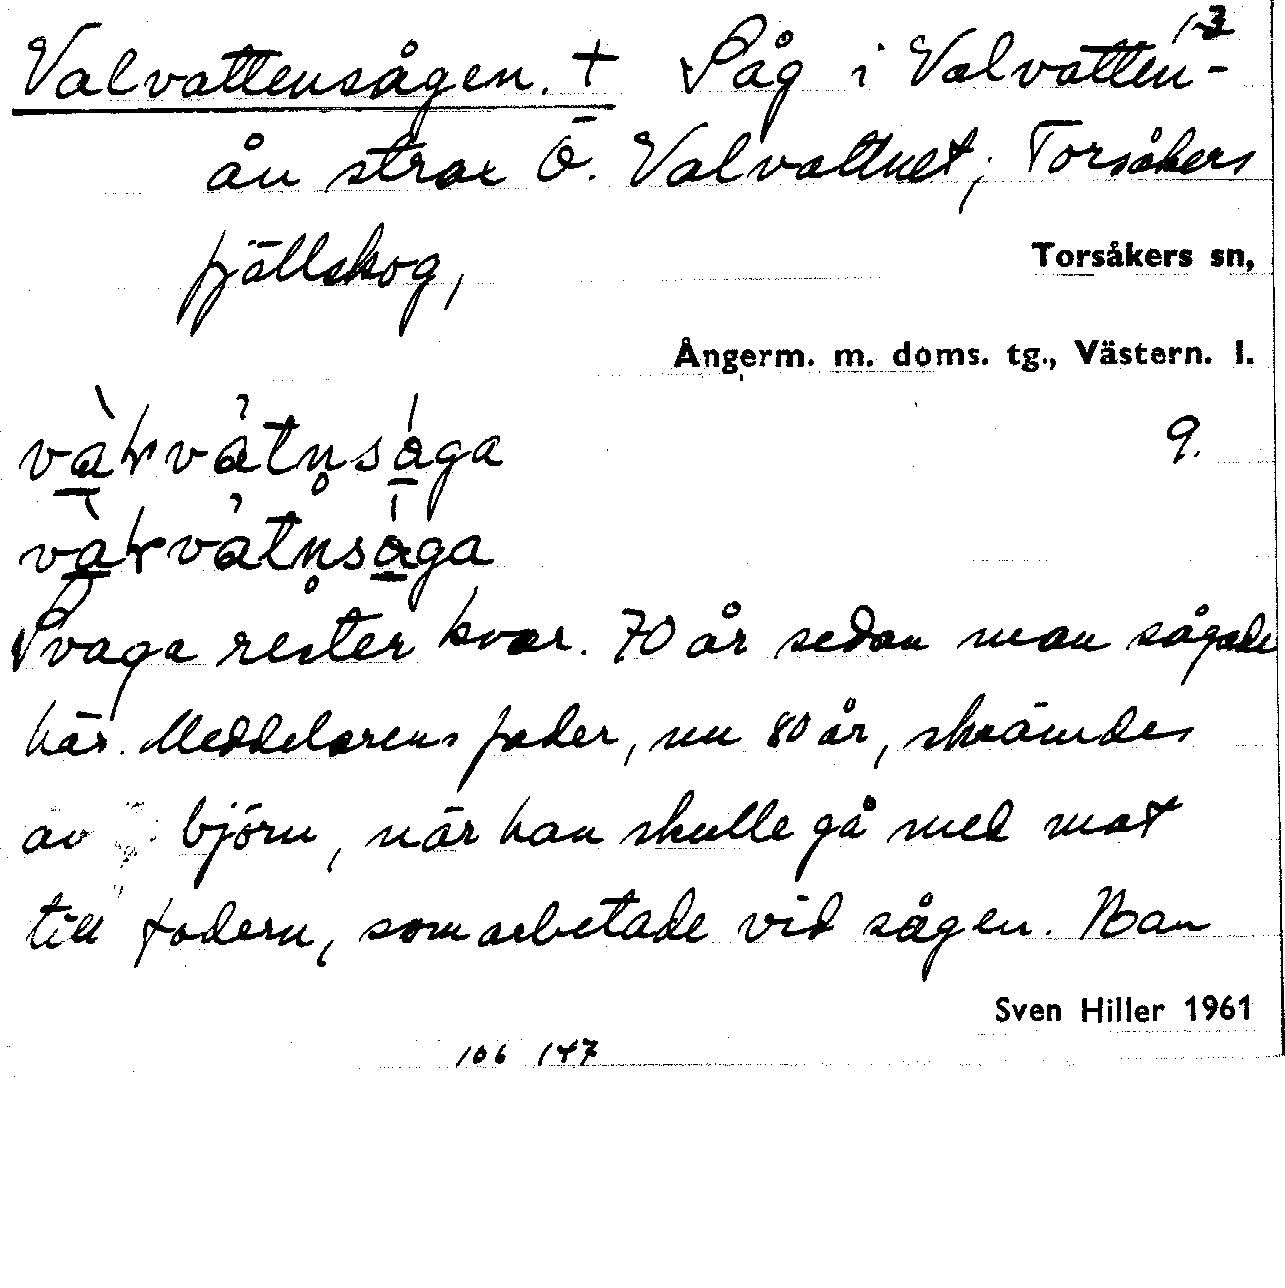 1-3
Valvattensågen. + Såg i Valvatten-
ån strax Ö. Valvattnet, Torsåkers
fjällskog,
Torsåkers sn,
Ångerm. m. doms. tg., Västern. l.
9.
Svaga rester kvar. 70 år sedan man sågade
här. Meddelarens fader, nu 80 år, skrämdes
av björn, när han skulle gå med mat
till fadern, som arbetade vid sågen. Man
Sven Hiller 1961
106 147